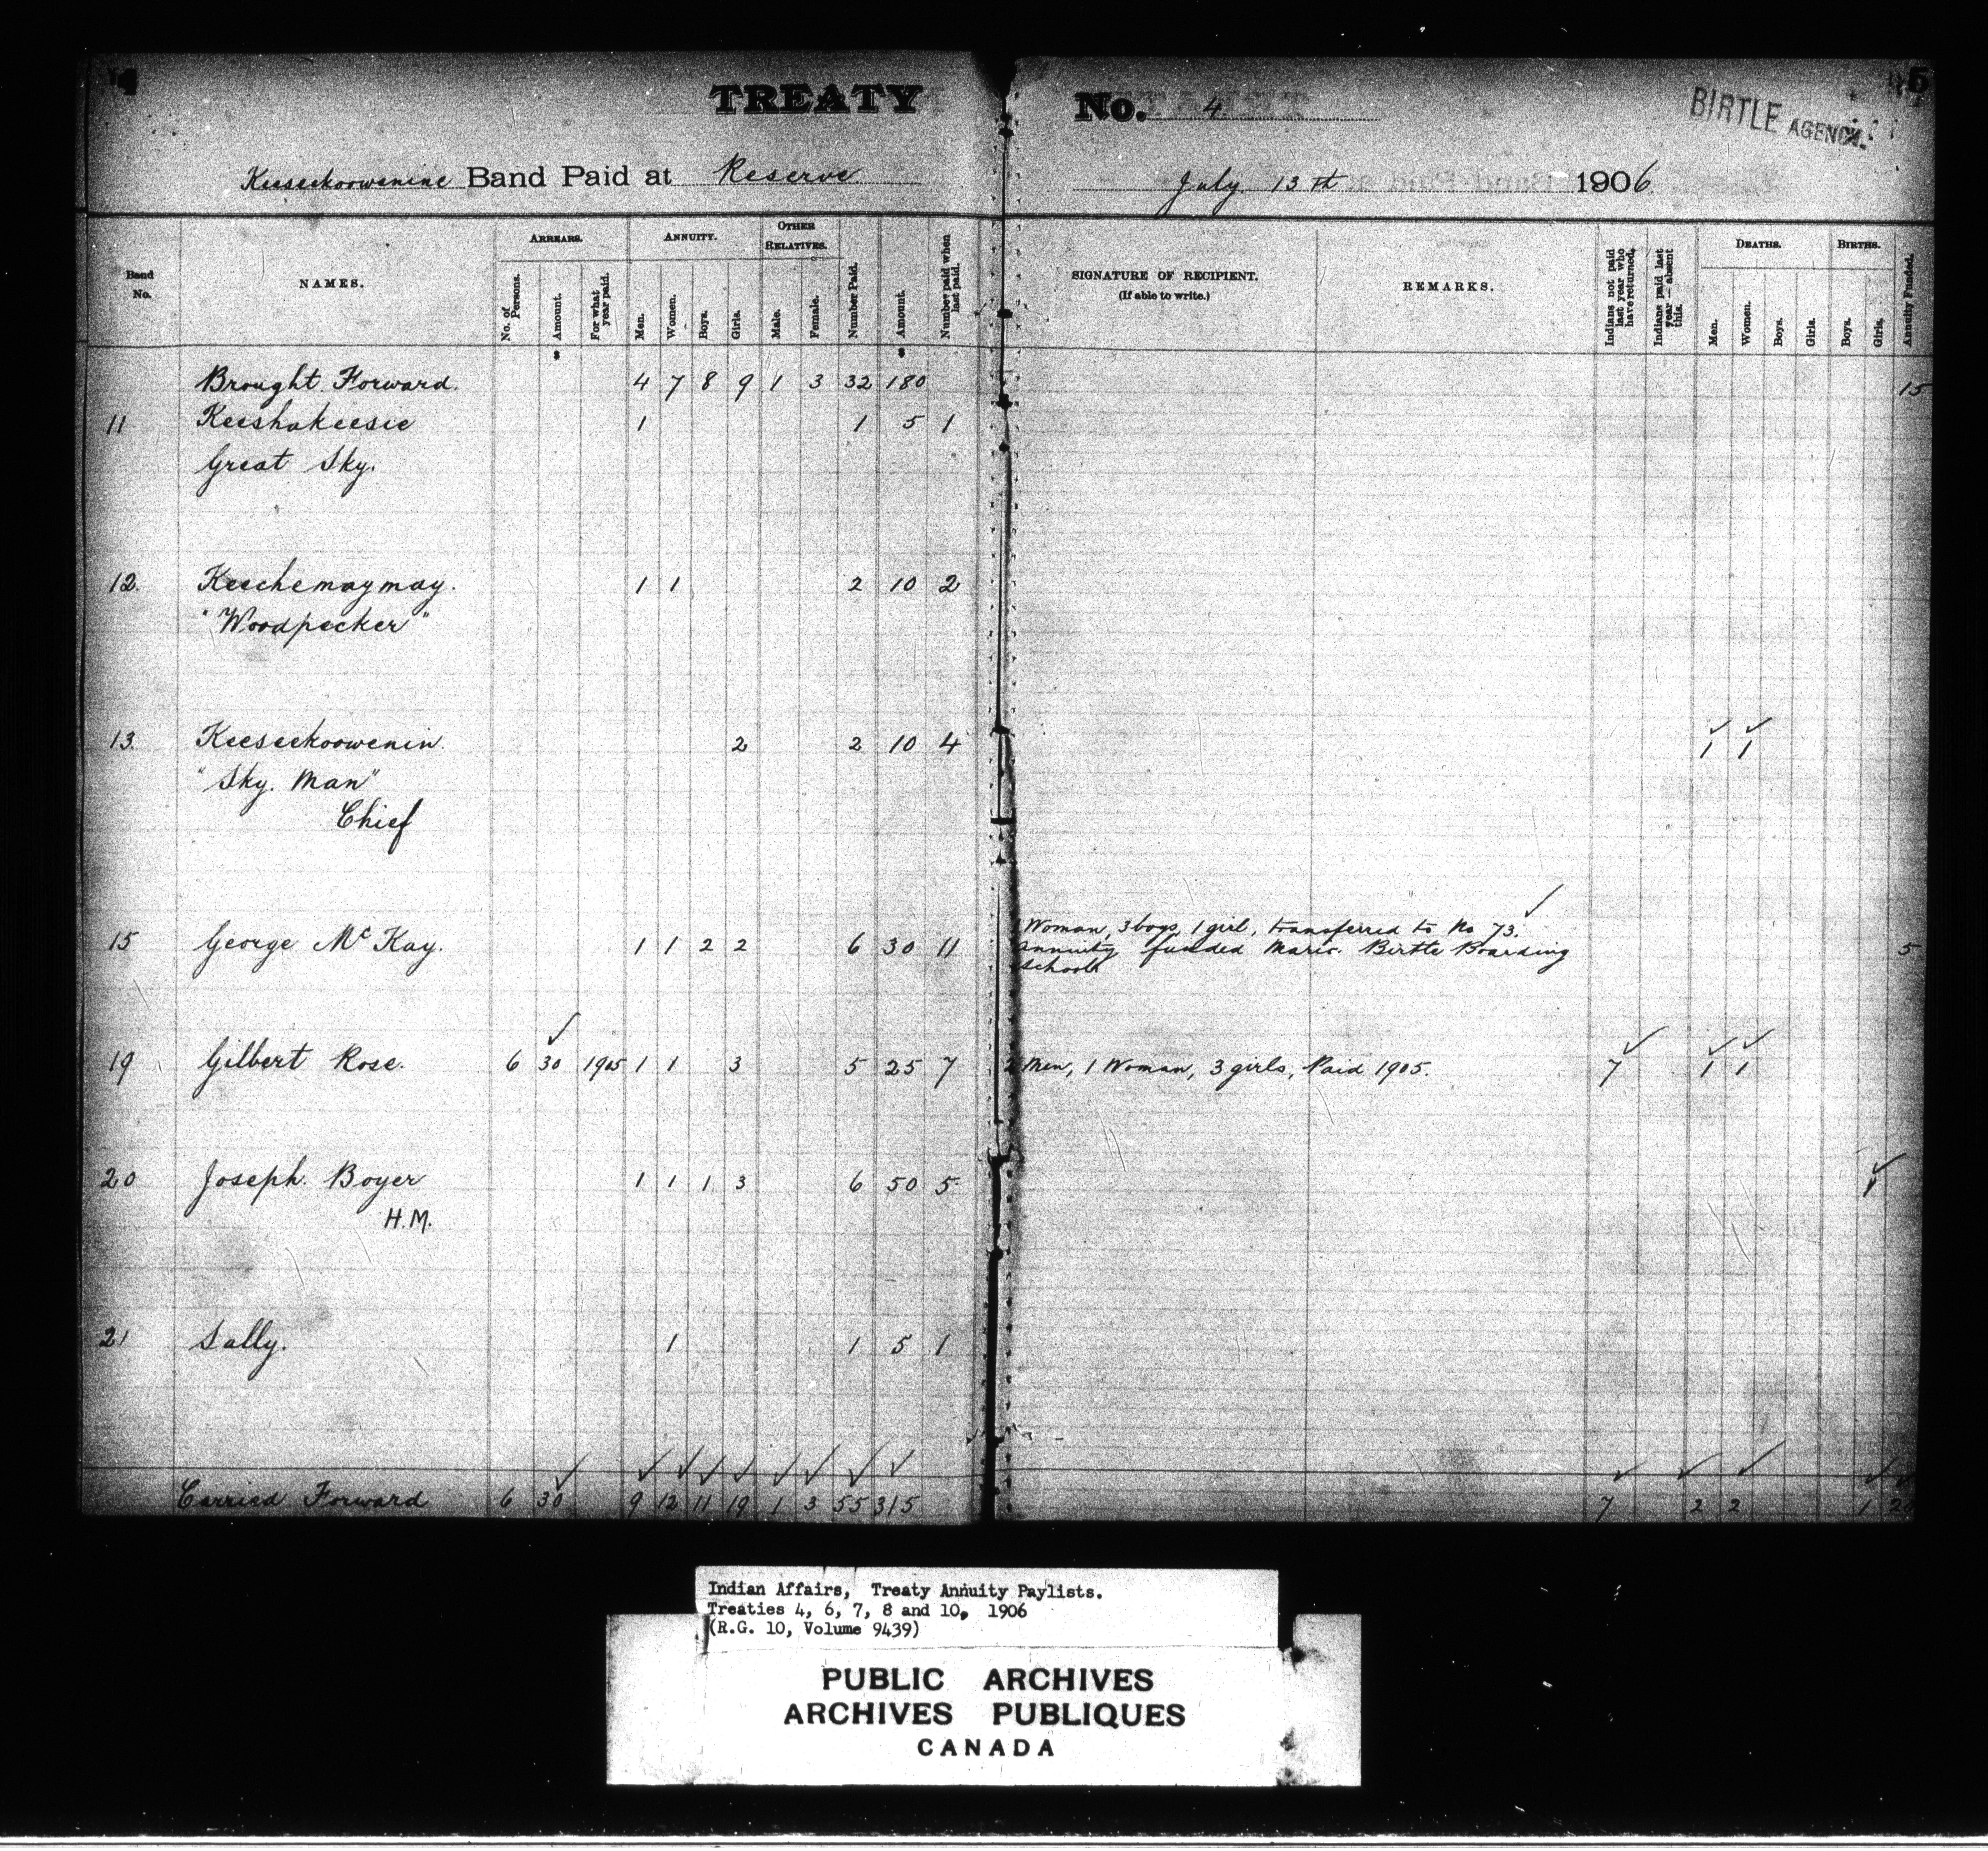 4
5
TREATY No. 4
BIRTLE AGENCY.
Keeseekoowenine Band Paid at Reserve July 13th 1906
Band No. NAMES. ARREARS. ANNUITY. OTHER RELATIVES. Number Paid. Amount. Number paid when last paid. SIGNATURE OF RECIPIENT. (If able to write.) REMARKS. Indians not paid last year who have returned. Indians paid last year — absent this. DEATHS. BIRTHS. Annuity Funded.
No. of Persons. Amount. For what year paid. Men. Women. Boys. Girls. Male. Female. Men. Women. Boys. Girls. Boys. Girls.
Brought Forward. 4 7 8 9 1 3 32 180 15
11 Keeshakeesic 1 1 5 1
Great Sky.
12. Keechemaymay. 1 1 2 10 2
"Woodpecker"
13. Keeseekoowenin. 2 2 10 4 1 1
"Sky. Man"
Chief
1 Woman, 3 boys, 1 girl, transferred to No 73.
15 George McKay. 1 1 2 2 6 30 11 Annuity funded Marie. Birtle Boarding 5
School
19 Gilbert Rose. 6 30 1905 1 1 3 5 25 7 2 Men, 1 Woman, 3 girls, Paid 1905. 7 1 1
20 Joseph. Boyer 1 1 1 3 6 50 5 1
H.M.
21 Sally. 1 1 5 1
Carried Forward 6 30 9 12 11 19 1 3 55 315 7 2 2 1
Indian Affairs, Treaty Annuity Paylists.
Treaties 4, 6, 7, 8 and 10, 1906
(R.G. 10, Volume 9439)
PUBLIC ARCHIVES
ARCHIVES PUBLIQUES
CANADA